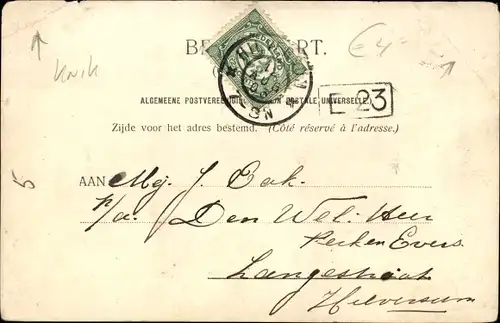 € 4-
BR RT.
knik
E 23
ALGEMEENE POSTVEREENIGING POSTALE UNIVERSELLE.
Zijde voor het adres bestemd. (Côté réservé à l'adresse.)
5
AAN Mej. J. Bak.
p/a. Den Wel. Heer
Perken Evers
Langestraat
Hilversum